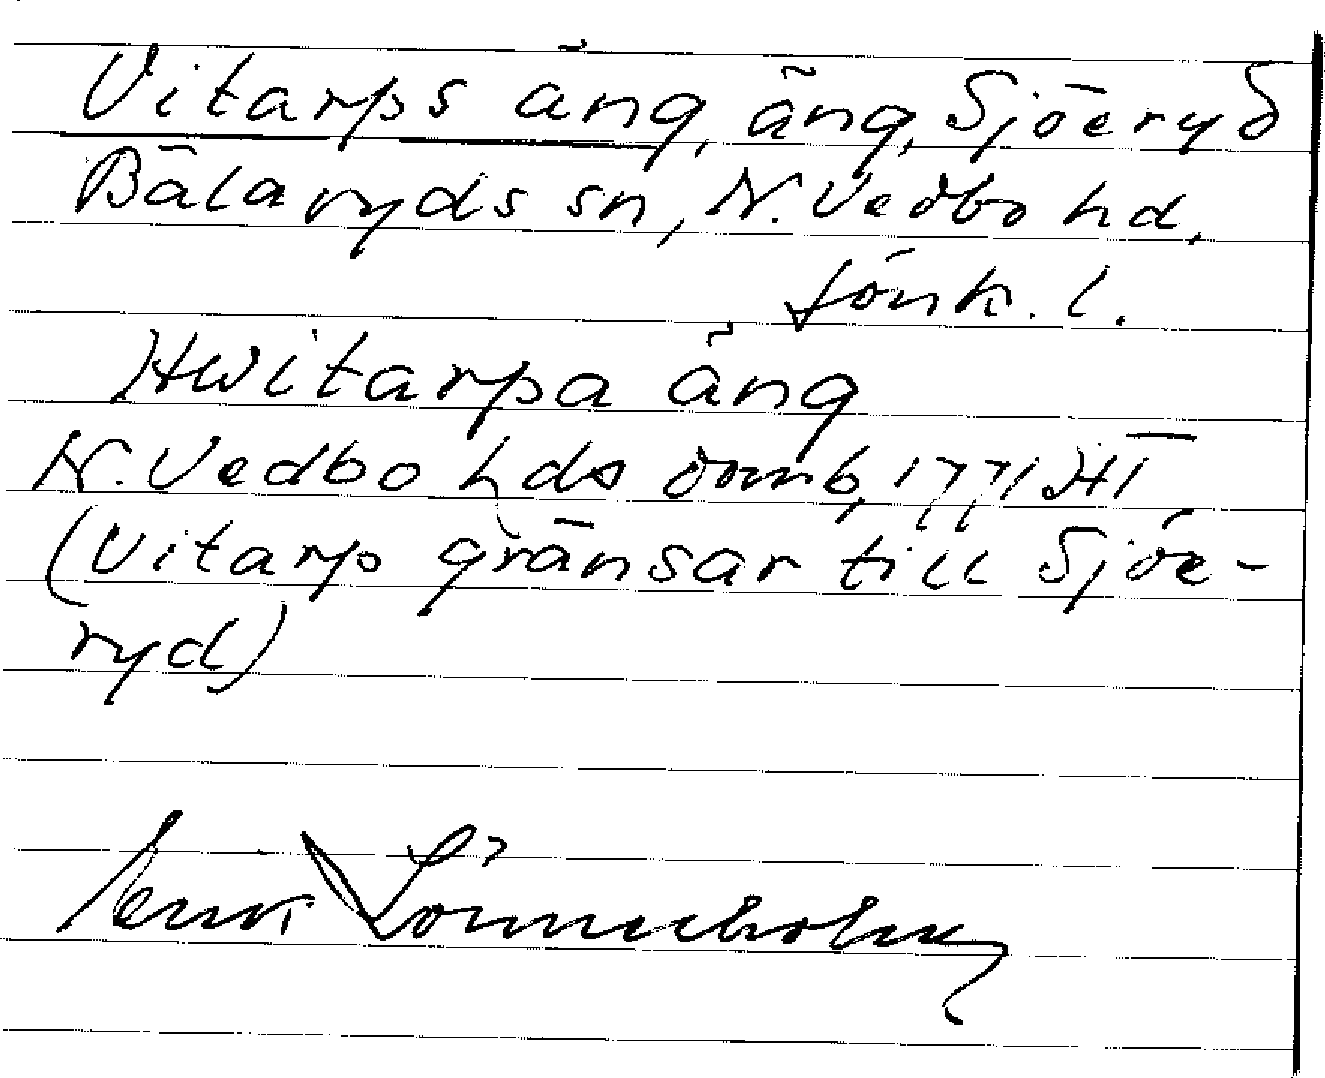 Vitarps äng, äng, Sjöeryd
Bälaryds sn, N. Vedbo hd.
Jönk. l.
Hwitarpa äng
N. Vedbo hds domb, 1771 HT
(Vitarp gränsar till Sjöe-
ryd)